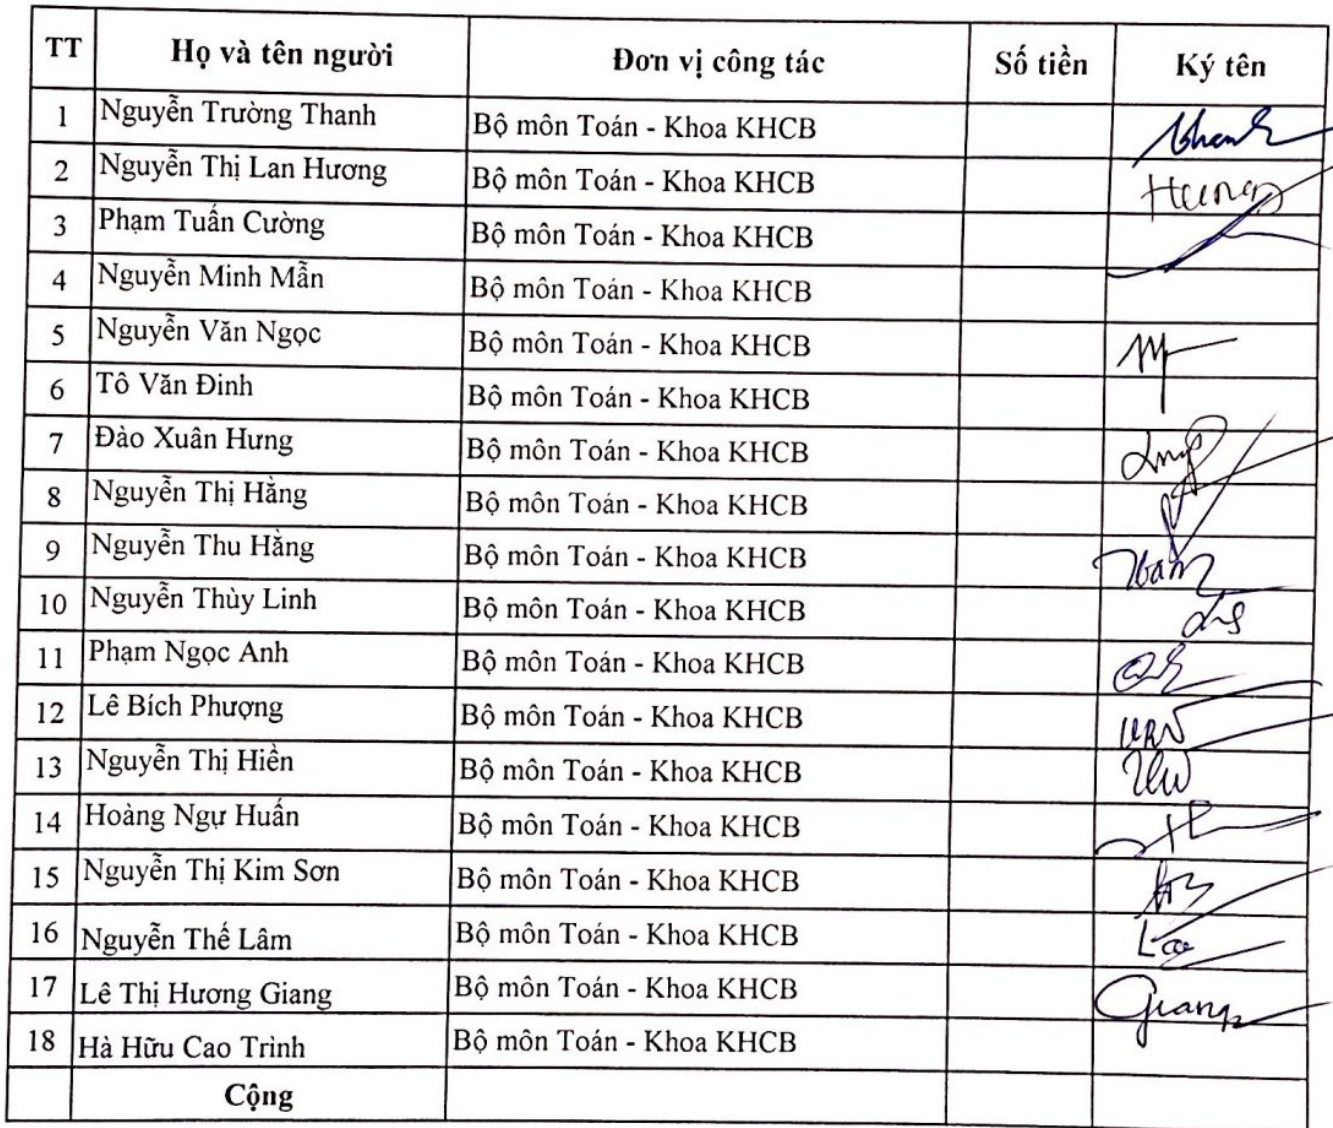 TT Họ và tên người Đơn vị công tác Số tiền Ký tên
1 Nguyễn Trường Thanh Bộ môn Toán - Khoa KHCB
2 Nguyễn Thị Lan Hương Bộ môn Toán - Khoa KHCB Hương
3 Phạm Tuấn Cường Bộ môn Toán - Khoa KHCB
4 Nguyễn Minh Mẫn Bộ môn Toán - Khoa KHCB
5 Nguyễn Văn Ngọc Bộ môn Toán - Khoa KHCB
6 Tô Văn Đinh Bộ môn Toán - Khoa KHCB
7 Đào Xuân Hưng Bộ môn Toán - Khoa KHCB
8 Nguyễn Thị Hằng Bộ môn Toán - Khoa KHCB
9 Nguyễn Thu Hằng Bộ môn Toán - Khoa KHCB
10 Nguyễn Thùy Linh Bộ môn Toán - Khoa KHCB
11 Phạm Ngọc Anh Bộ môn Toán - Khoa KHCB
12 Lê Bích Phượng Bộ môn Toán - Khoa KHCB
13 Nguyễn Thị Hiền Bộ môn Toán - Khoa KHCB
14 Hoàng Ngự Huấn Bộ môn Toán - Khoa KHCB
15 Nguyễn Thị Kim Sơn Bộ môn Toán - Khoa KHCB
16 Nguyễn Thế Lâm Bộ môn Toán - Khoa KHCB
17 Lê Thị Hương Giang Bộ môn Toán - Khoa KHCB Giang
18 Hà Hữu Cao Trình Bộ môn Toán - Khoa KHCB
Cộng